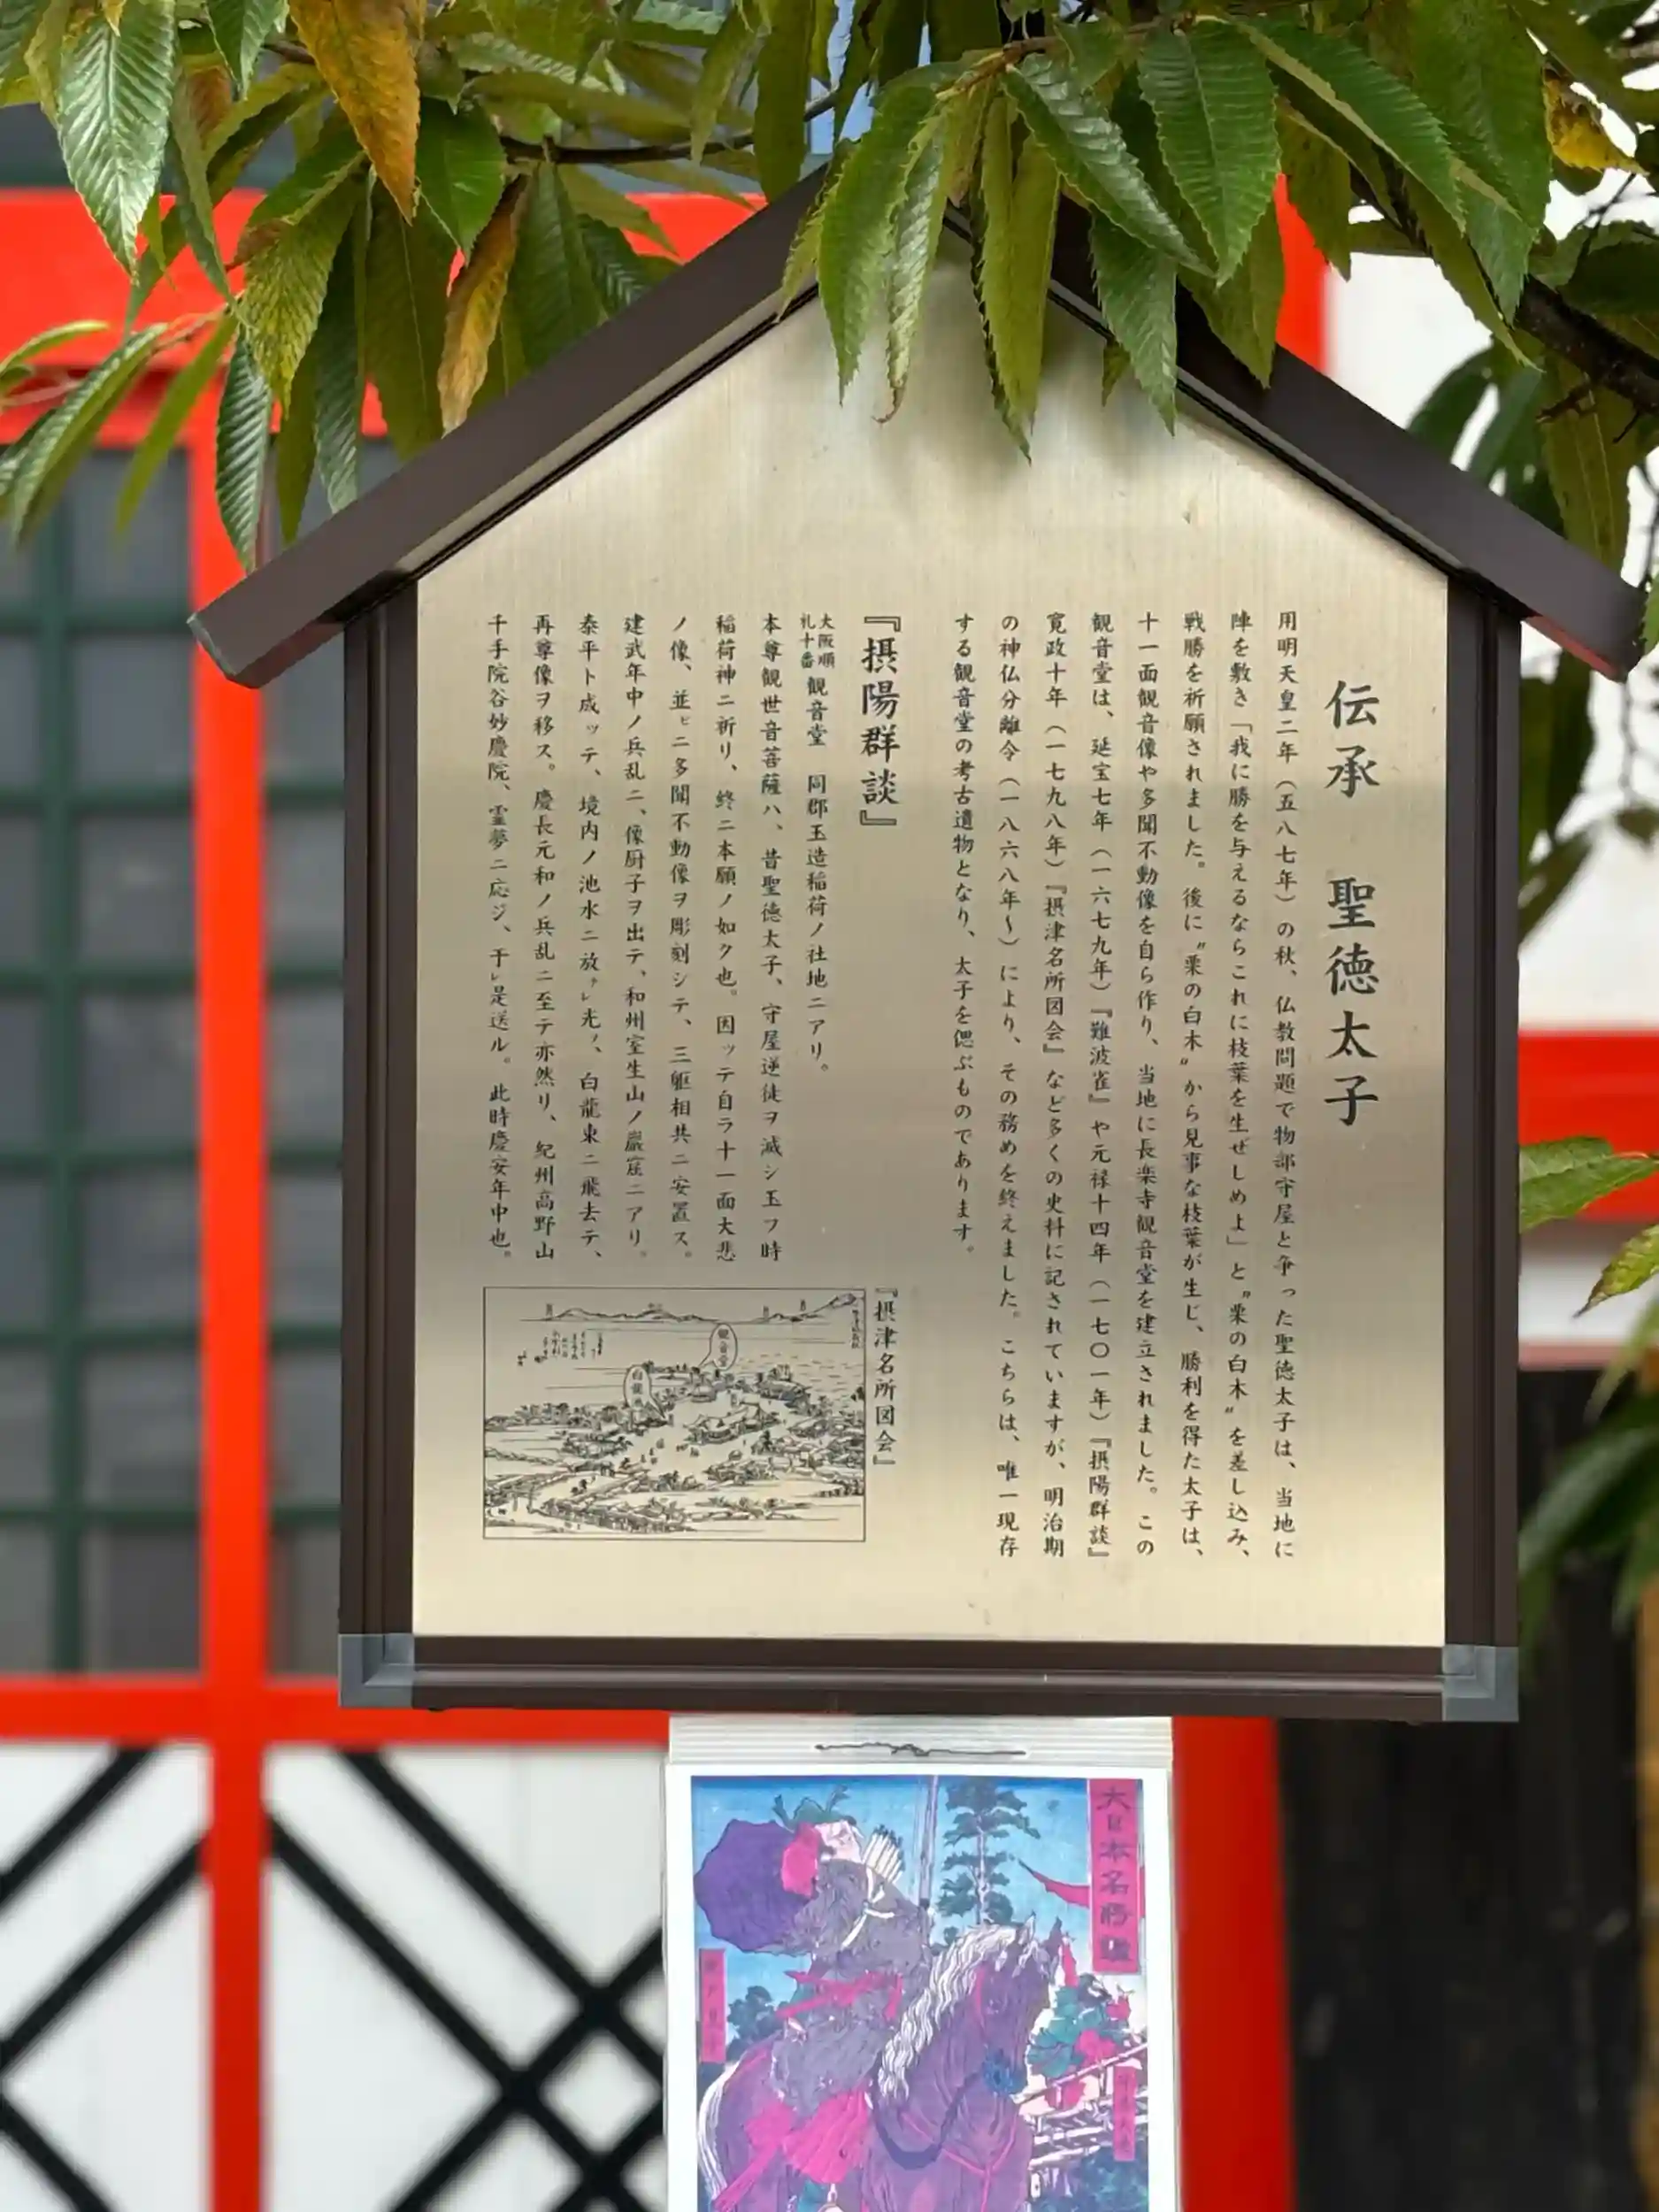 伝承 聖徳太子
用明天皇二年（五八七年）の秋、仏教問題で物部守屋と争った聖徳太子は、当地に
陣を敷き「我に勝を与えるならこれに枝葉を生ぜしめよ」と〝栗の白木〟を差し込み、
戦勝を祈願されました。後に〝栗の白木〟から見事な枝葉が生じ、勝利を得た太子は、
十一面観音像や多聞不動像を自ら作り、当地に長楽寺観音堂を建立されました。この
観音堂は、延宝七年（一六七九年）『難波雀』や元禄十四年（一七〇一年）『摂陽群談』
寛政十年（一七九八年）『摂津名所図会』など多くの史料に記されていますが、明治期
の神仏分離令（一八六八年〜）により、その務めを終えました。こちらは、唯一現存
する観音堂の考古遺物となり、太子を偲ぶものであります。
『摂陽群談』
大阪順礼十番 観音堂 同郡玉造稲荷ノ社地ニアリ。
本尊観世音菩薩ハ、昔聖徳太子、守屋逆徒ヲ滅シ玉フ時
稲荷神ニ祈リ、終ニ本願ノ如ク也。因ッテ自ラ十一面大悲
ノ像、並ビニ多聞不動像ヲ彫刻シテ、三躯相共ニ安置ス。
建武年中ノ兵乱ニ、像厨子ヲ出テ、和州室生山ノ巖窟ニアリ。
泰平ト成ッテ、境内ノ池水ニ放ァレ光ヲ、白龍東ニ飛去テ、
再尊像ヲ移ス。慶長元和ノ兵乱ニ至テ亦然リ、紀州高野山
千手院谷妙慶院、霊夢ニ応ジ、于レ是送ル。此時慶安年中也。
『摂津名所図会』
観音堂
白龍
大日本名勝